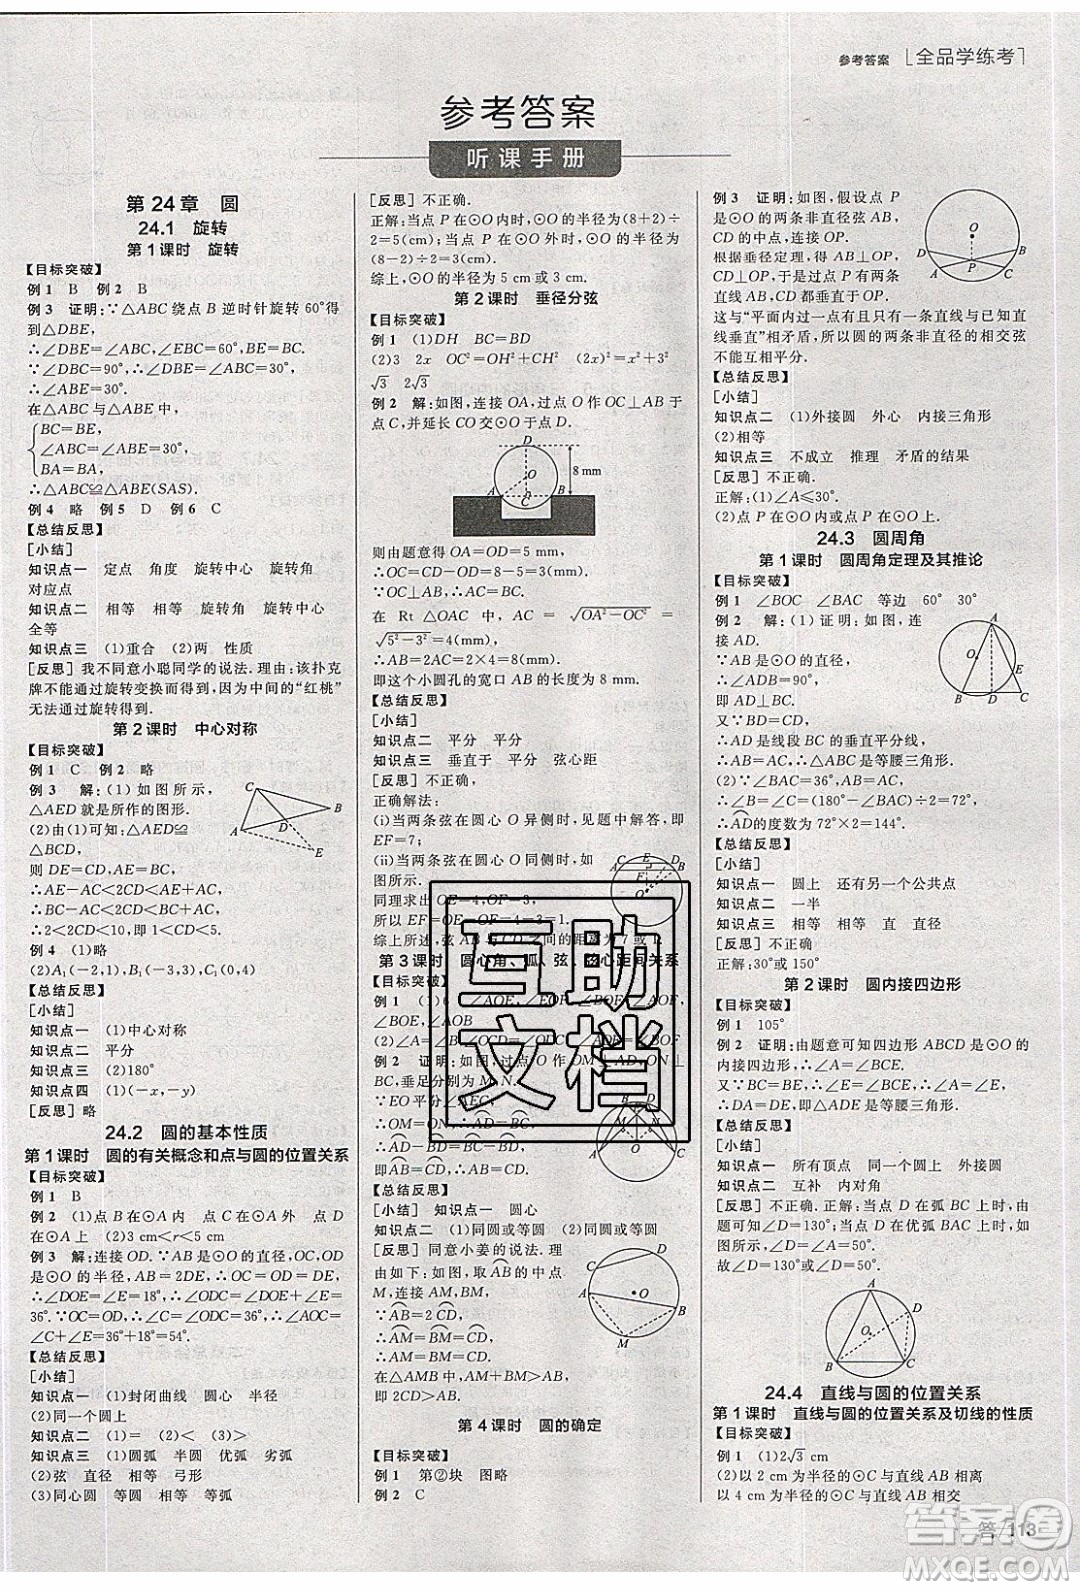 参考答案 [全品学练考]
参考答案
听课手册
第24章 圆
24.1 旋转
第1课时 旋转
【目标突破】
例1 B 例2 B
例3 证明:∵△ABC绕点B逆时针旋转60°得
到△DBE,
∴∠DBE=∠ABC,∠EBC=60°,BE=BC.
∵∠DBC=90°,∴∠DBE=∠ABC=30°,
∴∠ABE=30°.
在△ABC与△ABE中,
BC=BE,
∠ABC=∠ABE=30°,
BA=BA,
∴△ABC≌△ABE(SAS).
例4 略 例5 D 例6 C
【总结反思】
[小结]
知识点一 定点 角度 旋转中心 旋转角
对应点
知识点二 相等 相等 旋转角 旋转中心
全等
知识点三 (1)重合 (2)两 性质
[反思] 我不同意小聪同学的说法.理由:该扑克
牌不能通过旋转变换而得到,因为中间的“红桃”
无法通过旋转得到.
第2课时 中心对称
【目标突破】
例1 C 例2 略
例3 解:(1)如图所示,
△AED就是所作的图形.
(2)由(1)可知:△AED≌
△BCD,
则DE=CD,AE=BC,
∴AE-AC<2CD<AE+AC,
即BC-AC<2CD<BC+AC,
∴2<2CD<10,即1<CD<5.
例4 (1)略
(2)A₁(-2,1),B₁(-3,-2),C₁(0,0)
【总结反思】
[小结]
知识点一 (1)中心对称
知识点二 平分
知识点三 (2)180°
知识点四 (1)(-x,-y)
[反思] 略
24.2 圆的基本性质
第1课时 圆的有关概念和点与圆的位置关系
【目标突破】
例1 B
例2 (1)点B在⊙A内 点C在⊙A外 点D
在⊙A上 (2)3 cm<r<5 cm
例3 解:连接OD.∵AB是⊙O的直径,OC,OD
是⊙O的半径,AB=2DE,∴OD=DE,
∴∠DOE=∠E=18°,∴∠ODC=∠DOE+∠E=
36°.∵OC=OD,∴∠C=∠ODC=36°,∴∠AOC=
∠C+∠E=36°+18°=54°.
【总结反思】
[小结]
知识点一 (1)封闭曲线 圆心 半径
(2)同一个圆上
知识点二 (1)= (2)< (3)>
知识点三 (1)圆弧 半圆 优弧 劣弧
(2)弦 直径 等弧 弓形
(3)同心圆 等圆 相等 等弧
[反思] 不正确.
正解:当点P在⊙O内时,⊙O的半径为(8+2)÷
2=5(cm);当点P在⊙O外时,⊙O的半径为
(8-2)÷2=3(cm).
综上,⊙O的半径为5 cm或3 cm.
第2课时 垂径分弦
【目标突破】
例1 (1)DH BC=BD
(2)3 2x OC²=OH²+CH² (2x)²=x²+3²
√3 2√3
例2 解:如图,连接OA,过点O作OC⊥AB于
点C,并延长CO交⊙O于点D,
D
O
8 mm
A
B
C
则由题意得OA=OD=5 mm,
∴OC=CD-OD=8-5=3(mm).
∵OC⊥AB,∴AC=BC.
在Rt△OAC中,AC=√OA²-OC²=
√5²-3²=4(mm),
∴AB=2AC=2×4=8(mm),
即这个小圆孔的宽口AB的长度为8 mm.
【总结反思】
[小结]
知识点二 平分 平分
知识点三 垂直于 平分 弦心距
[反思] 不正确.
正确解法:
(i)当两条弦在圆心O异侧时,如题中解答,即
EF=7;
(ii)当两条弦在圆心O同侧时,如
图所示.
同理求出OE=4,OF=3,
所以EF=OE-OF=1.
综上所述,弦AB与CD之间的距离为7或1.
第3课时 圆心角、弧、弦、弦心距间关系
【目标突破】
例2 证明:如图,过点O作OM⊥AD,ON⊥
∵EO平分∠AEC,
∴OM=ON,∴AB=CD,
∴AB-BD=CD-BD,
即AD=BC,∴AD=BC.
【总结反思】
[小结] 知识点一 圆心
知识点二 (1)同圆或等圆 (2)同圆或等圆
[反思] 不同意小姜的说法.理
由如下:如图,取AB的中点
M,连接AM,BM.
∵AB=2CD,
∴AM=BM=CD,
∴AM=BM=CD.
在△ABM中,AM+BM>AB,
即2CD>AB.
第4课时 圆的确定
【目标突破】
例1 第②块 图略
例2 C
例3 证明:如图,假设点P是
⊙O的两条非直径弦AB,
CD的中点,连接OP.
根据垂径定理,可得AB⊥OP,
CD⊥OP,即过点P有两条
直线AB,CD与OP垂直,
这与“平面内过一点有且只有一条直线与已知
直线垂直”相矛盾,所以圆的两条非直径的相交弦
不能互相平分.
【总结反思】
[小结]
知识点二 (1)外接圆 外心 内接三角形
(2)相等
知识点三 不成立 推理 矛盾的结果
[反思] 不正确.
正解:(1)∠A≤30°.
(2)点P在⊙O上或点P在⊙O外.
24.3 圆周角
第1课时 圆周角定理及其推论
【目标突破】
例1 ∠BOC ∠BAC 等边 60° 30°
例2 解:(1)证明:如图,连
接AD.
∵AB是⊙O的直径,
∴∠ADB=90°,
即AD⊥BC.
又∵BD=CD,
∴AD是线段BC的垂直平分线,
∴AB=AC,∴△ABC是等腰三角形.
(2)∵∠BAC=36°,AB=AC,
∴∠B=∠C=(180°-∠BAC)÷2=72°,
∴AD的度数为72°×2=144°.
【总结反思】
[小结]
知识点一 圆上 还有另一个公共点
知识点二 一半
知识点三 相等 相等 直 直径
[反思] 不正确.
正解:30°或150°
第2课时 圆内接四边形
【目标突破】
例1 105°
例2 证明:由题意可知四边形ABCD是⊙O的
内接四边形,∴∠A+∠BCD=180°.
又∵∠DCE+∠BCD=180°,∴∠A=∠DCE.
又∵DC=CE,∴∠CDE=∠E,∴∠A=∠E,
∴DA=DE,即△ADE是等腰三角形.
【总结反思】
[小结]
知识点一 所有顶点 同一个圆 外接圆
知识点二 互补 内对角
[反思] 不正确.正解:当点D在弧BC上时,由
题意可知∠D=130°;当点D在优弧BAC上时,
如图所示,∠D=∠A=50°.
故∠D=130°或∠D=50°.
24.4 直线与圆的位置关系
第1课时 直线与圆的位置关系及切线的性质
【目标突破】
例1 (1)2√3 cm
(2)以2 cm为半径的⊙C与直线AB相离
以4 cm为半径的⊙C与直线AB相交
答 113
互助
文档
答案圈
MXQE.COM